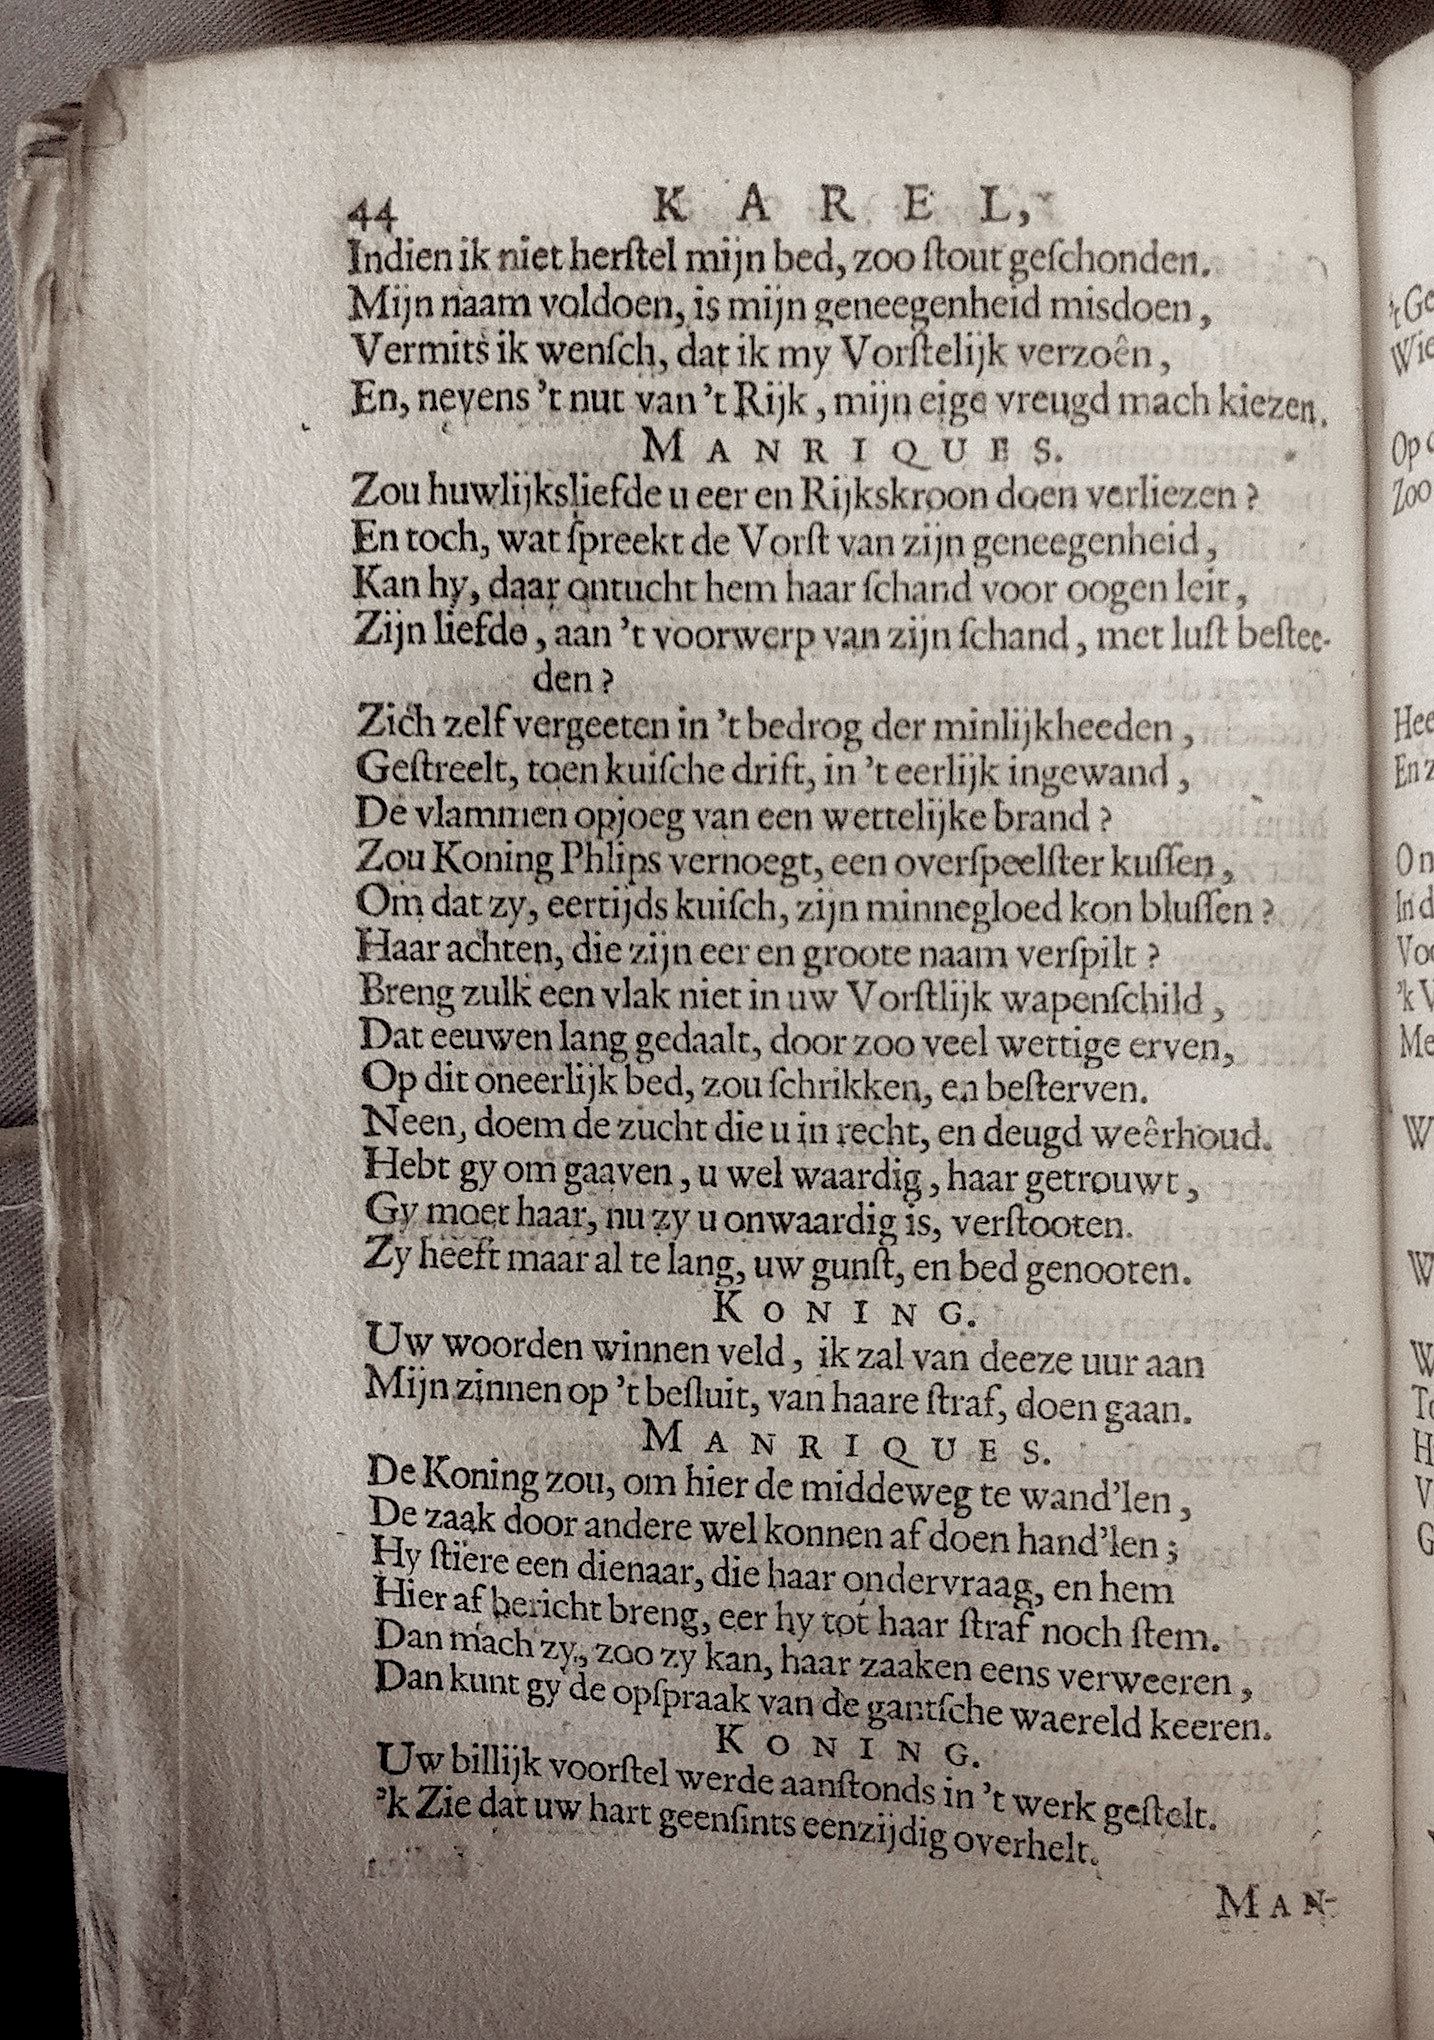 44 KAREL,
Indien ik niet herſtel mijn bed, zoo ſtout geſchonden.
Mijn naam voldoen, is mijn geneegenheid misdoen,
Vermits ik wenſch, dat ik my Vorſtelijk verzoên,
En, nevens 't nut van 't Rijk, mijn eige vreugd mach kiezen.
MANRIQUES.
Zou huwlijksliefde u eer en Rijkskroon doen verliezen?
En toch, wat ſpreekt de Vorſt van zijn geneegenheid,
Kan hy, daar ontucht hem haar ſchand voor oogen leit,
Zijn liefde, aan 't voorwerp van zijn ſchand, met luſt beſtee-
den?
Zich zelf vergeeten in 't bedrog der minlijkheeden,
Geſtreelt, toen kuiſche drift, in 't eerlijk ingewand,
De vlammen opjoeg van een wettelijke brand?
Zou Koning Phlips vernoegt, een overſpeelſter kuſſen,
Om dat zy, eertijds kuiſch, zijn minnegloed kon bluſſen?
Haar achten, die zijn eer en groote naam verſpilt?
Breng zulk een vlak niet in uw Vorſtlijk wapenſchild,
Dat eeuwen lang gedaalt, door zoo veel wettige erven,
Op dit oneerlijk bed, zou ſchrikken, en beſterven.
Neen, doem de zucht die u in recht, en deugd weêrhoud.
Hebt gy om gaaven, u wel waardig, haar getrouwt,
Gy moet haar, nu zy u onwaardig is, verſtooten.
Zy heeft maar al te lang, uw gunſt, en bed genooten.
KONING.
Uw woorden winnen veld, ik zal van deeze uur aan
Mijn zinnen op 't beſluit, van haare ſtraf, doen gaan.
MANRIQUES.
De Koning zou, om hier de middeweg te wand'len,
De zaak door andere wel konnen af doen hand'len;
Hy ſtiere een dienaar, die haar ondervraag, en hem
Hier af bericht breng, eer hy tot haar ſtraf noch ſtem.
Dan mach zy, zoo zy kan, haar zaaken eens verweeren,
Dan kunt gy de opſpraak van de gantſche waereld keeren.
KONING.
Uw billijk voorſtel werde aanſtonds in 't werk geſtelt.
'k Zie dat uw hart geenſints eenzijdig overhelt.
MAN-